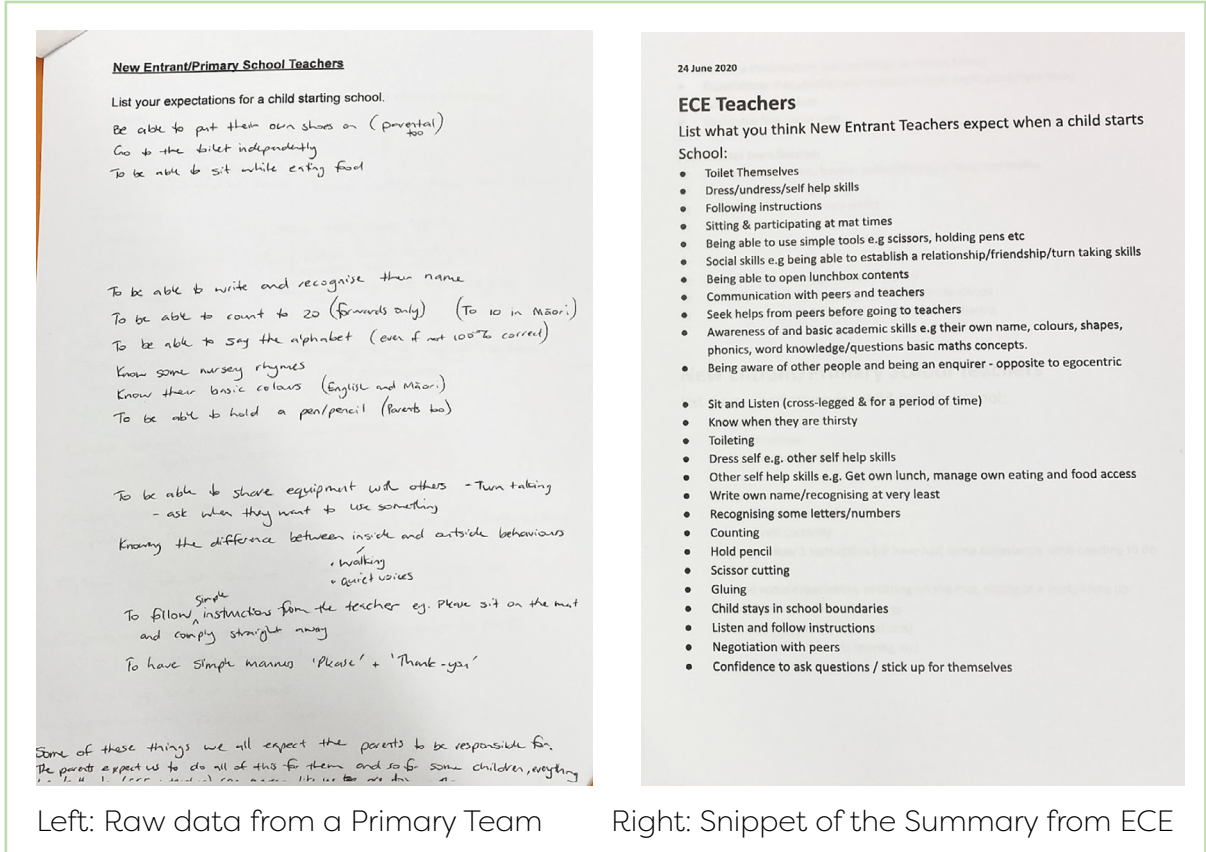 New Entrant/Primary School Teachers
List your expectations for a child starting school.
Be able to put their own shoes on (parental too)
Go to the toilet independently
To be able to sit while eating food
To be able to write and recognise their name
To be able to count to 20 (forwards only) (To 10 in Māori)
To be able to say the alphabet (even if not 100% correct)
Know some nursey rhymes
Know their basic colours (English and Māori)
To be able to hold a pen/pencil (Parents too)
To be able to share equipment with others - Turn taking
- ask when they want to use something
Knowing the difference between inside and outside behaviours
• walking
• quiet voices
To follow simple instructions from the teacher eg. Please sit on the mat
and comply straight away
To have simple manners 'Please' + 'Thank-you'
Some of these things we all expect the parents to be responsible for.
The parents expect us to do all of this for them and so for some children, everything
24 June 2020
ECE Teachers
List what you think New Entrant Teachers expect when a child starts
School:
• Toilet Themselves
• Dress/undress/self help skills
• Following instructions
• Sitting & participating at mat times
• Being able to use simple tools e.g scissors, holding pens etc
• Social skills e.g being able to establish a relationship/friendship/turn taking skills
• Being able to open lunchbox contents
• Communication with peers and teachers
• Seek helps from peers before going to teachers
• Awareness of and basic academic skills e.g their own name, colours, shapes,
phonics, word knowledge/questions basic maths concepts.
• Being aware of other people and being an enquirer - opposite to egocentric
• Sit and Listen (cross-legged & for a period of time)
• Know when they are thirsty
• Toileting
• Dress self e.g. other self help skills
• Other self help skills e.g. Get own lunch, manage own eating and food access
• Write own name/recognising at very least
• Recognising some letters/numbers
• Counting
• Hold pencil
• Scissor cutting
• Gluing
• Child stays in school boundaries
• Listen and follow instructions
• Negotiation with peers
• Confidence to ask questions / stick up for themselves
Left: Raw data from a Primary Team
Right: Snippet of the Summary from ECE